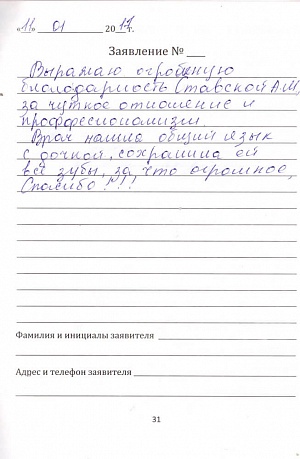 «11» 01 2017г.
Заявление № ___
Выражаю огромную
благодарность Ставской А.М.
за чуткое отношение и
профессионализм.
Врач нашла общий язык
с дочкой, сохранила ей
все зубы, за что огромное,
Спасибо!!!
Фамилия и инициалы заявителя
Адрес и телефон заявителя
31